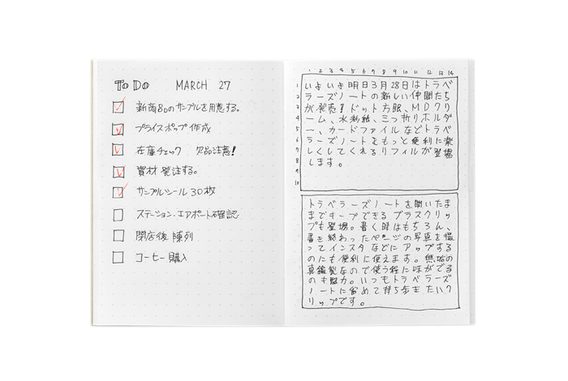 To Do MARCH 27
新商品のサンプルを用意する。
プライスポップ作成
在庫チェック 欠品注意!
資材発注する。
サンプルシール 30枚
ステーション.エアポート確認
閉店後 陳列
コーヒー購入
1 2 3 4 5 6 7 8 9 10 11 12 13 14
1 いよいよ明日3月28日はトラベ
2 ラーズノートの新しい仲間たち
3 が発売!ドット方眼、MDクリ
4 ーム、水彩紙、三つ折りホルダ
5 ー、カードファイルなどトラベ
6 ラーズノートをもっと便利に楽
7 しくしてくれるリフィルが登場
8 します。
9
10
トラベラーズノートを開いたま
まキープできるブラスクリッ
プも登場。書く時はもちろん、
書き終わったページの写真を撮
ってインスタなどにアップする
のにも便利に使えます。無垢の
真鍮製なので使う程に味がでる
のも魅力。いつもトラベラーズ
ノートに留めて持ち歩きたいク
リップです。